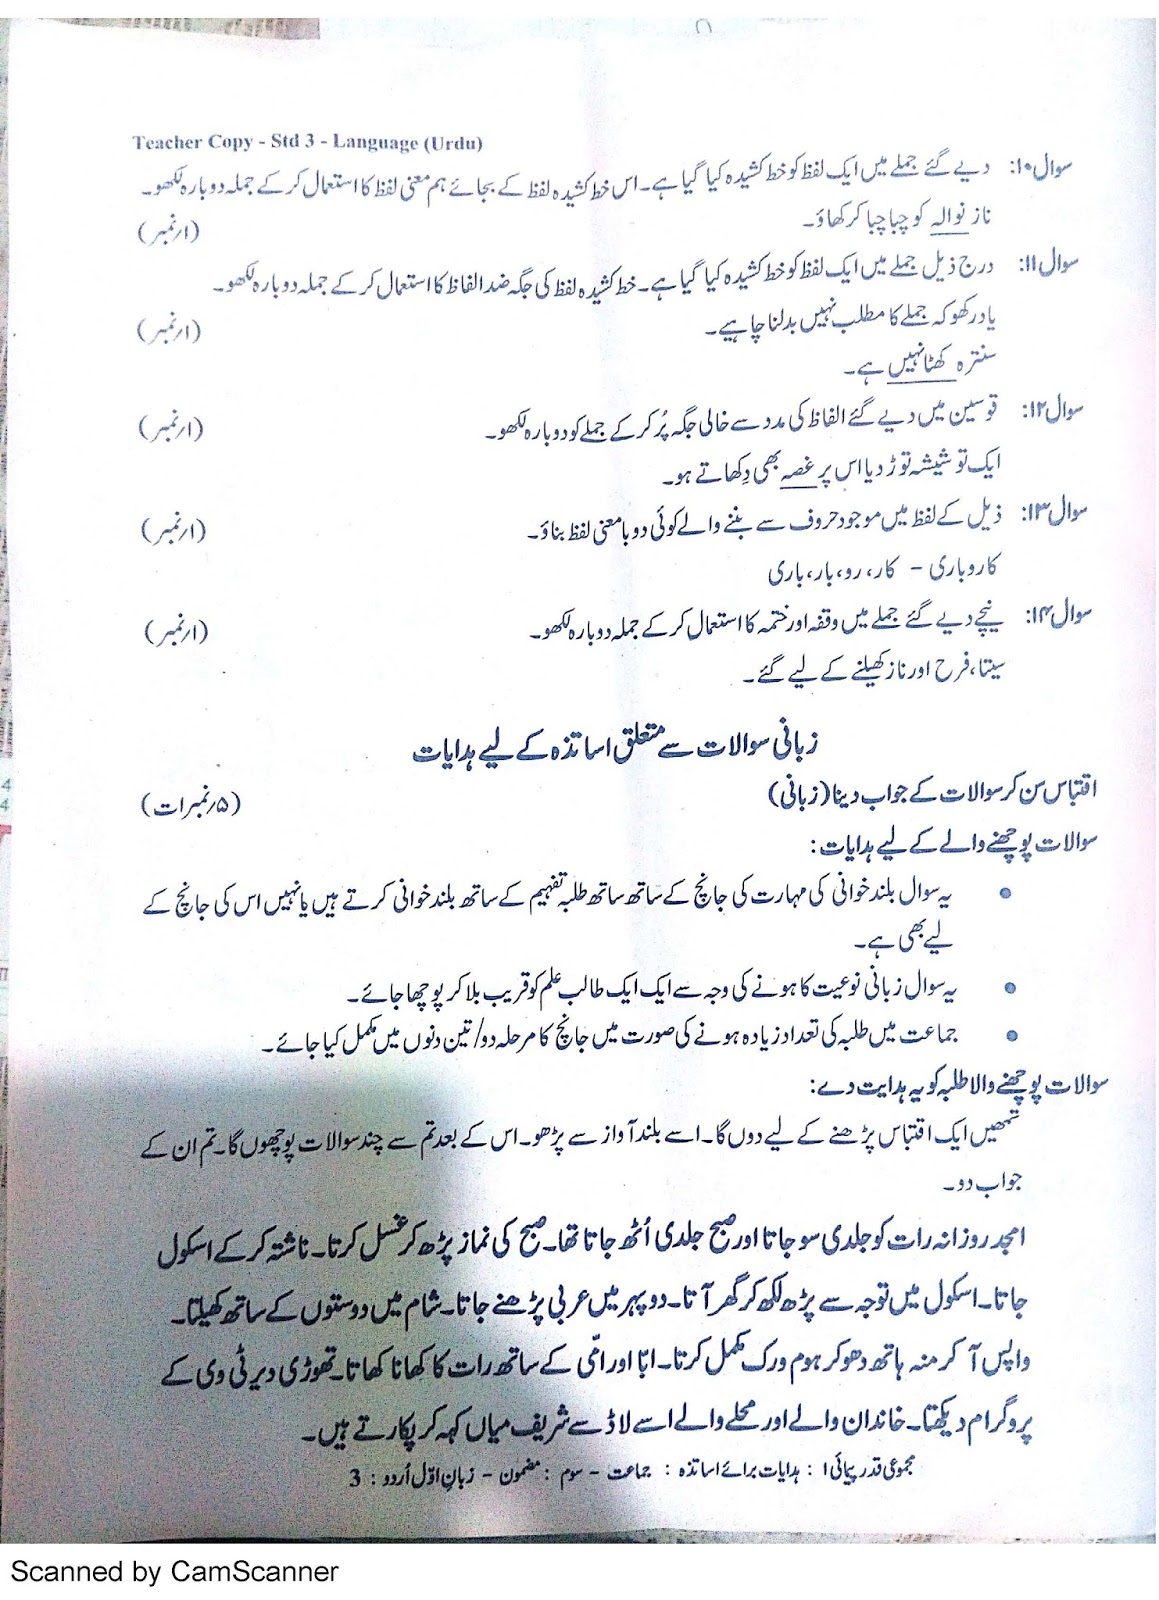 Teacher Copy - Std 3 - Language (Urdu)
سوال ۱۰: دیے گئے جملے میں ایک لفظ کو خط کشیدہ کیا گیا ہے۔ اس خط کشیدہ لفظ کے بجائے ہم معنی لفظ کا استعمال کر کے جملہ دوبارہ لکھو۔
ناز نوالہ کو چبا چبا کر کھاؤ۔ (۱؍نمبر)
سوال ۱۱: درج ذیل جملے میں ایک لفظ کو خط کشیدہ کیا گیا ہے۔ خط کشیدہ لفظ کی جگہ ضد الفاظ کا استعمال کر کے جملہ دوبارہ لکھو۔
یاد رکھو کہ جملے کا مطلب نہیں بدلنا چاہیے۔ (۱؍نمبر)
سنترہ کھٹا نہیں ہے۔
سوال ۱۲: قوسین میں دیے گئے الفاظ کی مدد سے خالی جگہ پُر کر کے جملے کو دوبارہ لکھو۔ (۱؍نمبر)
ایک تو شیشہ توڑ دیا اس پر غصہ بھی دِکھاتے ہو۔
سوال ۱۳: ذیل کے لفظ میں موجود حروف سے بننے والے کوئی دو با معنی لفظ بناؤ۔ (۱؍نمبر)
کاروباری - کار، رو، بار، باری
سوال ۱۴: نیچے دیے گئے جملے میں وقفہ اور ختمہ کا استعمال کر کے جملہ دوبارہ لکھو۔ (۱؍نمبر)
سیتا، فرح اور ناز کھیلنے کے لیے گئے۔
زبانی سوالات سے متعلق اساتذہ کے لیے ہدایات
اقتباس سن کر سوالات کے جواب دینا (زبانی) (۵؍نمبرات)
سوالات پوچھنے والے کے لیے ہدایات:
• یہ سوال بلند خوانی کی مہارت کی جانچ کے ساتھ ساتھ طلبہ تفہیم کے ساتھ بلند خوانی کرتے ہیں یا نہیں اس کی جانچ کے
لیے بھی ہے۔
• یہ سوال زبانی نوعیت کا ہونے کی وجہ سے ایک ایک طالب علم کو قریب بلا کر پوچھا جائے۔
• جماعت میں طلبہ کی تعداد زیادہ ہونے کی صورت میں جانچ کا مرحلہ دو/تین دنوں میں مکمل کیا جائے۔
سوالات پوچھنے والا طلبہ کو یہ ہدایت دے:
تمھیں ایک اقتباس پڑھنے کے لیے دوں گا۔ اسے بلند آواز سے پڑھو۔ اس کے بعد تم سے چند سوالات پوچھوں گا۔ تم ان کے
جواب دو۔
امجد روزانہ رات کو جلدی سو جاتا اور صبح جلدی اُٹھ جاتا تھا۔ صبح کی نماز پڑھ کر غسل کرتا۔ ناشتہ کر کے اسکول
جاتا۔ اسکول میں توجہ سے پڑھ لکھ کر گھر آتا۔ دوپہر میں عربی پڑھنے جاتا۔ شام میں دوستوں کے ساتھ کھیلتا۔
واپس آ کر منہ ہاتھ دھو کر ہوم ورک مکمل کرتا۔ ابّا اور امّی کے ساتھ رات کا کھانا کھاتا۔ تھوڑی دیر ٹی وی کے
پروگرام دیکھتا۔ خاندان والے اور محلے والے اسے لاڈ سے شریف میاں کہہ کر پکارتے ہیں۔
مجموعی قدر پیمائی ۱ : ہدایات برائے اساتذہ : جماعت - سوم : مضمون - زبانِ اوّل اُردو : 3
Scanned by CamScanner